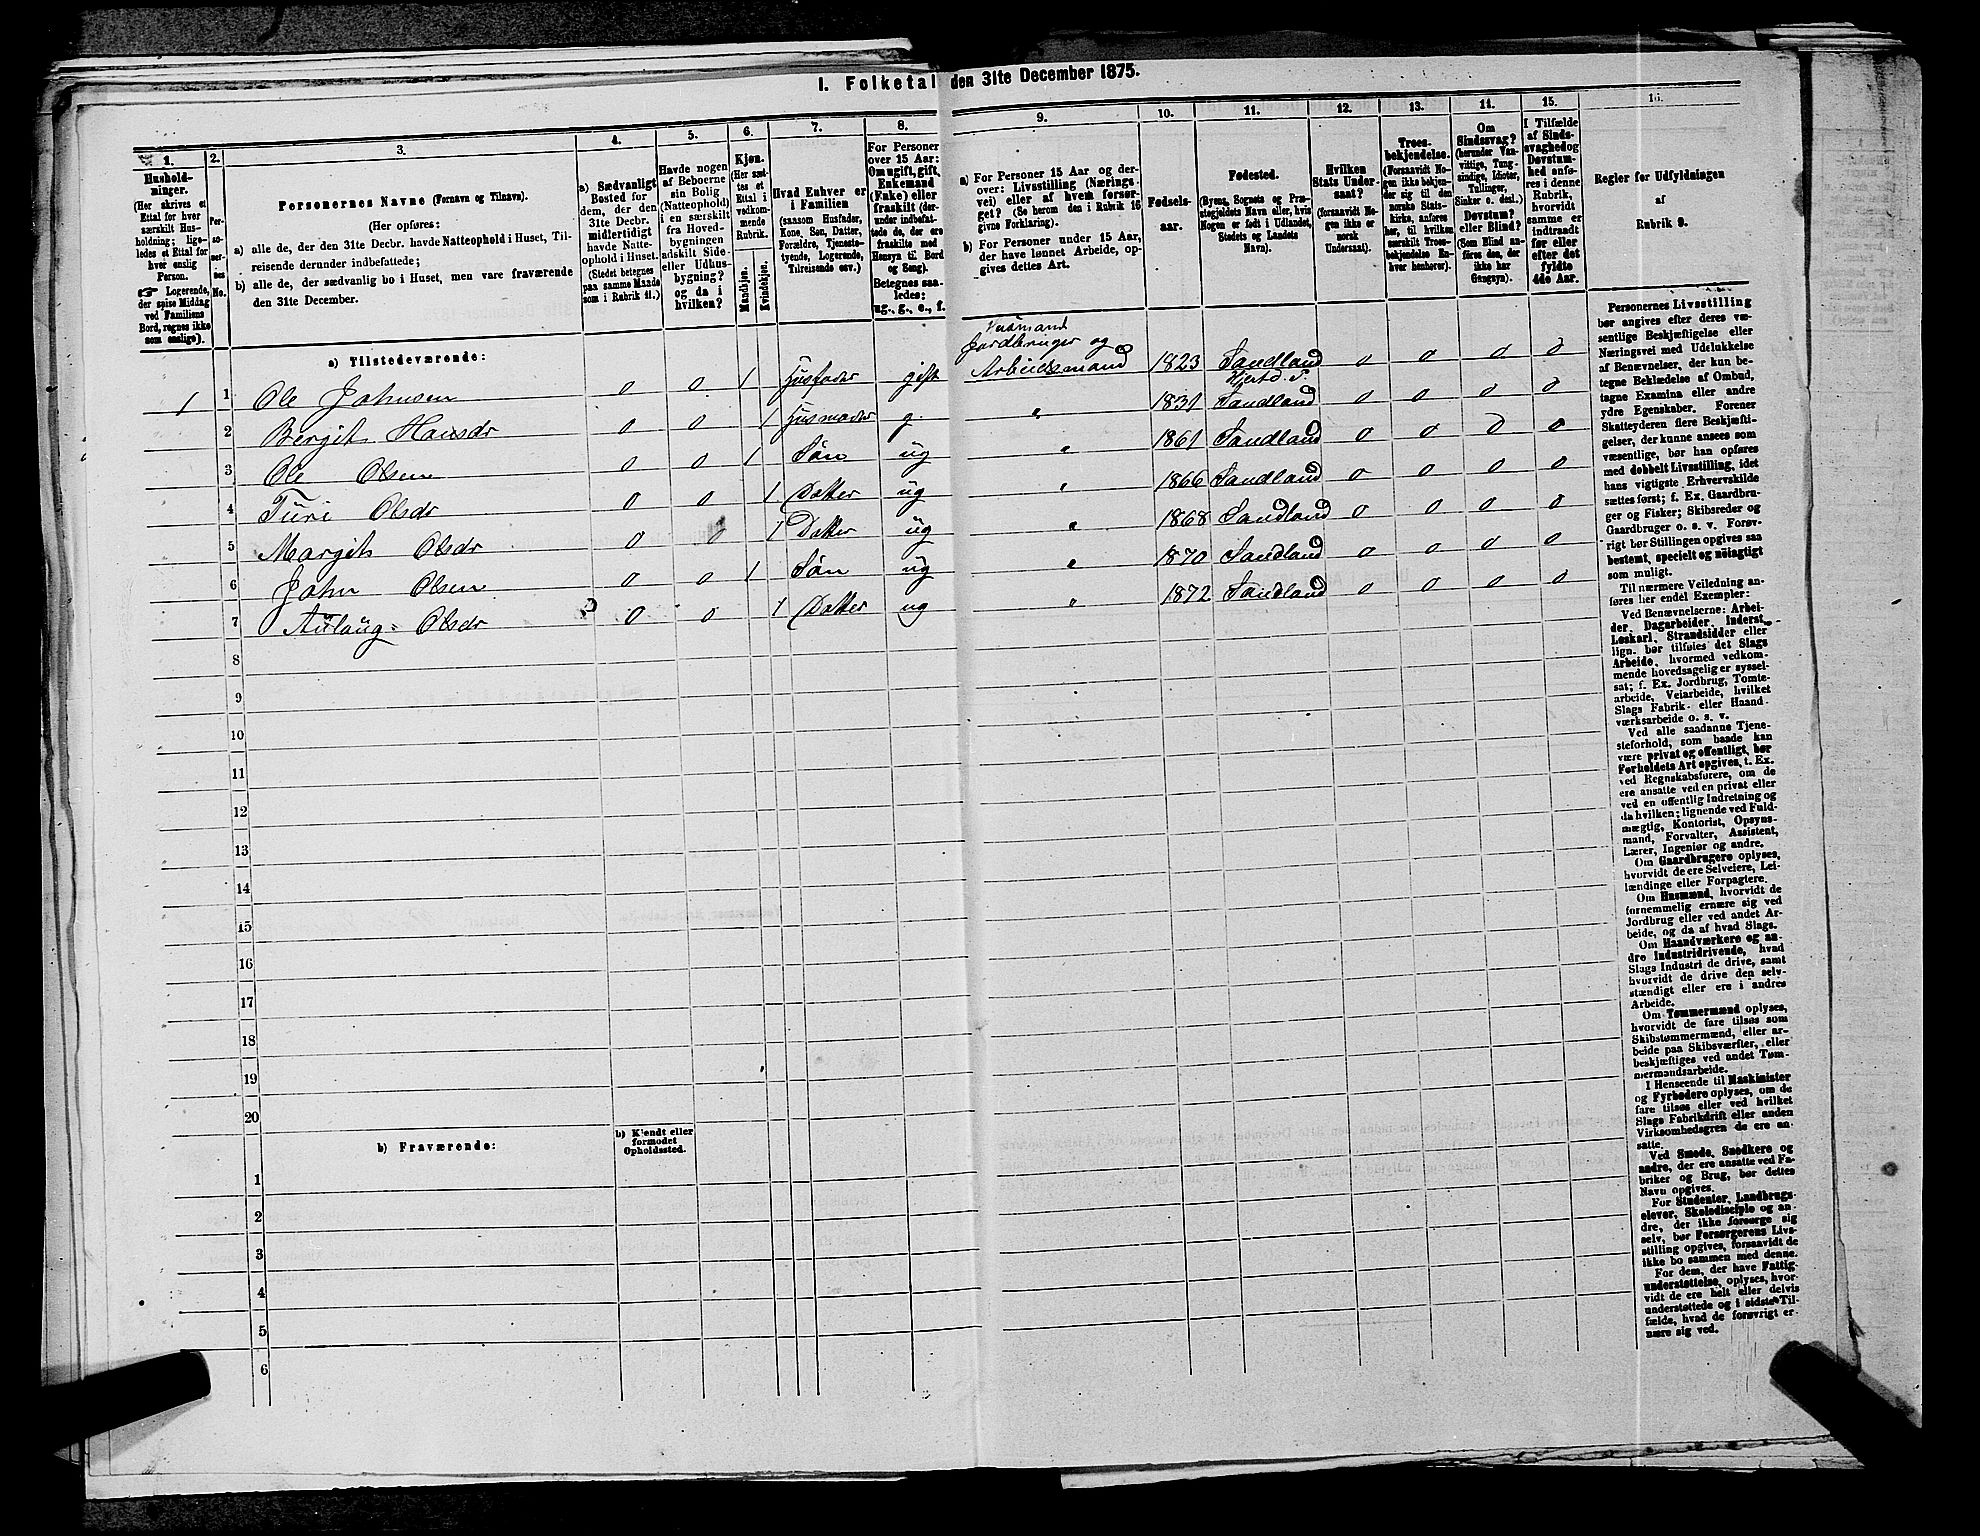 I. Folketal den 31te December 1875.
1. 2. 3. 4. 5. 6. 7. 8. 9. 10. 11. 12. 13. 14. 15. 16.
Hushold-
ninger.
(Her skrives et
Ettal for hver
særskilt Hus-
holdning; lige-
ledes et Ettal for
hver enslig
Person.
☞ Logerende,
der spise Middag
ved Familiens
Bord, regnes ikke
som enslige).
Per-
so-
ner-
nes
No.
Personernes Navne (Fornavn og Tilnavn).
(Her opføres:
a) alle de, der den 31te Decbr. havde Natteophold i Huset, Til-
reisende derunder indbefattede;
b) alle de, der sædvanlig bo i Huset, men vare fraværende
den 31te December.
a) Sædvanligt
Bosted for
dem, der den
31te Decbr.
midlertidigt
havde Natte-
ophold i Huset.
(Stedet betegnes
paa samme Maade
som i Rubrik 11.)
Havde nogen
af Beboerne
sin Bolig
(Natteophold)
i en særskilt
fra Hoved-
bygningen
adskilt Side-
eller Udhus-
bygning?
og da i
hvilken?
Kjøn.
(Her sæt-
tes et
Ettal i
vedkom-
mende
Rubrik.
Mandkjøn.
Kvindekjøn.
Hvad Enhver er
i Familien
(saasom Husfader,
Kone, Søn, Datter,
Forældre, Tjeneste-
tyende, Logerende,
Tilreisende osv.)
For Personer
over 15 Aar:
Om ugift, gift,
Enkemand
(Enke) eller
fraskilt (der-
under indbefat-
tede de, der ere
fraskilte med
Hensyn til Bord
og Seng).
Betegnes saa-
ledes:
ug., g., e., f.
a) For Personer 15 Aar og der-
over: Livsstilling (Nærings-
vei) eller af hvem forsør-
get? (Se herom den i Rubrik 16
givne Forklaring).
b) For Personer under 15 Aar,
der have lønnet Arbeide, op-
gives dettes Art.
Fødsels-
aar.
Fødested.
(Byens, Sognets og Præ-
stegjeldets Navn eller, hvis
Nogen er født i Udlandet,
Stedets og Landets
Navn).
Hvilken
Stats Under-
saat?
(forsaavidt No-
gen ikke er
norsk
Undersaat).
Troes-
bekjendelse.
(Forsaavidt No-
gen ikke bekjen-
der sig til den
norske Stats-
kirke, anføres
her, til hvilken
særskilt Troes-
bekjendelse En-
hver henhører).
Om
Sindssvag?
(herunder Van-
vittige, Tung-
sindige, Idioter,
Tullinger,
Sinker o. desl.)
Døvstum?
eller Blind?
(Som Blind an-
føres den, der
ikke har
Gangsyn).
I Tilfælde
af Sinds-
svaghed og
Døvstum-
hed anfø-
res i denne
Rubrik,
hvorvidt
samme er
indtraadt
før eller
efter det
fyldte
4de Aar.
Regler for Udfyldningen
af
Rubrik 9.
a) Tilstedeværende:
Husmand
Jordbruger og
1 1 Ole Johnsen 0 0 1 Husfader gift Arbeidsmand 1823 Sandland 0 0 0 0
Hjertd. P.
2 Bergit Hansdr 0 0 1 Husmoder g. " 1831 Sandland 0 0 0 0
3 Ole Olsen 0 0 1 Søn ug " 1861 Sandland 0 0 0 0
4 Turi Olsdr 0 0 1 Datter ug " 1866 Sandland 0 0 0 0
5 Margit Olsdr 0 0 1 Datter ug " 1868 Sandland 0 0 0 0
6 John Olsen 0 0 1 Søn ug " 1870 Sandland 0 0 0 0
7 Aslaug Olsdr 0 0 1 Datter ug " 1872 Sandland 0 0 0 0
8
9
10
11
12
13
14
15
16
17
18
19
20
b) Fraværende:
b) Kjendt eller
formodet
Opholdssted.
1
2
3
4
5
6
Personernes Livsstilling
bør angives efter deres væ-
sentlige Beskjæftigelse eller
Næringsvei med Udelukkelse
af Benævnelser, der kun be-
tegne Beklædelse af Ombud,
tagne Examina eller andre
ydre Egenskaber. Forener
Skatteyderen flere Beskjæfti-
gelser, der kunne ansees som
væsentlige, bør han opføres
med dobbelt Livsstilling, idet
hans vigtigste Erhvervskilde
sættes først; f. Ex. Gaardbru-
ger og Fisker; Skibsreder og
Gaardbruger o. s. v. Forøv-
rigt bør Stillingen opgives saa
bestemt, specielt og nøiagtigt
som muligt.
Til nærmere Veiledning an-
føres her endel Exempler:
Ved Benævnelserne: Arbei-
der, Dagarbeider, Inderst,
Løskarl, Strandsidder eller
lign. bør tilføies det Slags
Arbeide, hvormed vedkom-
mende hovedsagelig er syssel-
sat; f. Ex. Jordbrug, Tomte-
arbeide, Veiarbeide, hvilket
Slags Fabrik- eller Haand-
værksarbeide o. s. v.
Ved alle saadanne Tjene-
steforhold, som baade kan
være privat og offentligt, bør
Forholdets Art opgives, f. Ex.
ved Regnskabsførere, om de
ere ansatte ved en privat eller
ved en offentlig Indretning og
da hvilken; lignende ved Fuld-
mægtig, Kontorist, Opsyns-
mand, Forvalter, Assistent,
Lærer, Ingeniør og andre.
Om Gaardbrugere oplyses,
hvorvidt de ere Selveiere, Lei-
lændinge eller Forpagtere.
Om Husmænd, hvorvidt de
fornemmelig ernære sig ved
Jordbrug eller ved andet Ar-
beide, og da af hvad Slags.
Om Haandværkere og an-
dre Industridrivende, hvad
Slags Industri de drive, samt
hvorvidt de drive den selv-
stændigt eller ere i andres
Arbeide.
Om Tømmermænd oplyses,
hvorvidt de fare tilsøs som
Skibstømmermænd, eller ar-
beide paa Skibsværfter, eller
beskjæftiges ved andet Tøm-
mermandsarbeide.
I Henseende til Maskinister
og Fyrbødere oplyses, om de
fare tilsøs eller ved hvilket
Slags Fabrikdrift eller anden
Virksomhedsgren de ere an-
satte.
Ved Smede, Snedkere og
andre, der ere ansatte ved Fa-
briker og Brug, bør dettes
Navn opgives.
For Studenter, Landbrugs-
elever, Skoledisciple og an-
dre, der ikke forsørge sig
selv, bør Forsørgerens Livs-
stilling opgives, forsaavidt de
ikke bo sammen med denne.
For dem, der have Fattig-
understøttelse, oplyses, hvor-
vidt de ere helt eller delvis
understøttede og i sidste Til-
fælde, hvad de forøvrigt er-
nære sig ved.